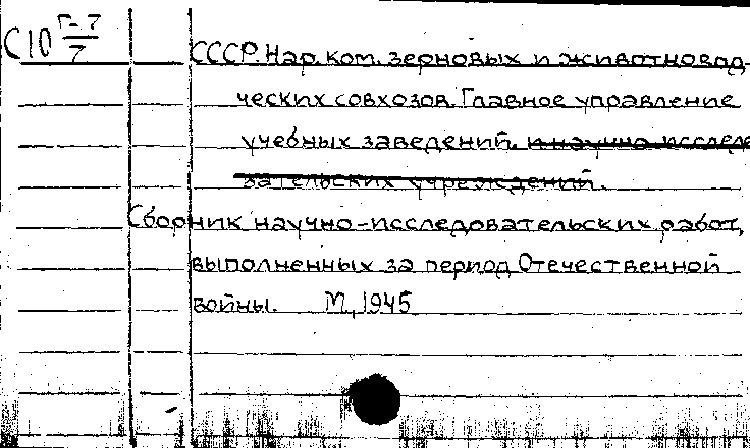 С10 Г-7/7
СССР. Нар. ком. зерновых и животновод-
ческих совхозов. Главное управление
учебных заведений. и научно-исследо
вательских учреждений.
Сборник научно-исследовательских работ,
выполненных за период Отечественной
войны. М., 1945